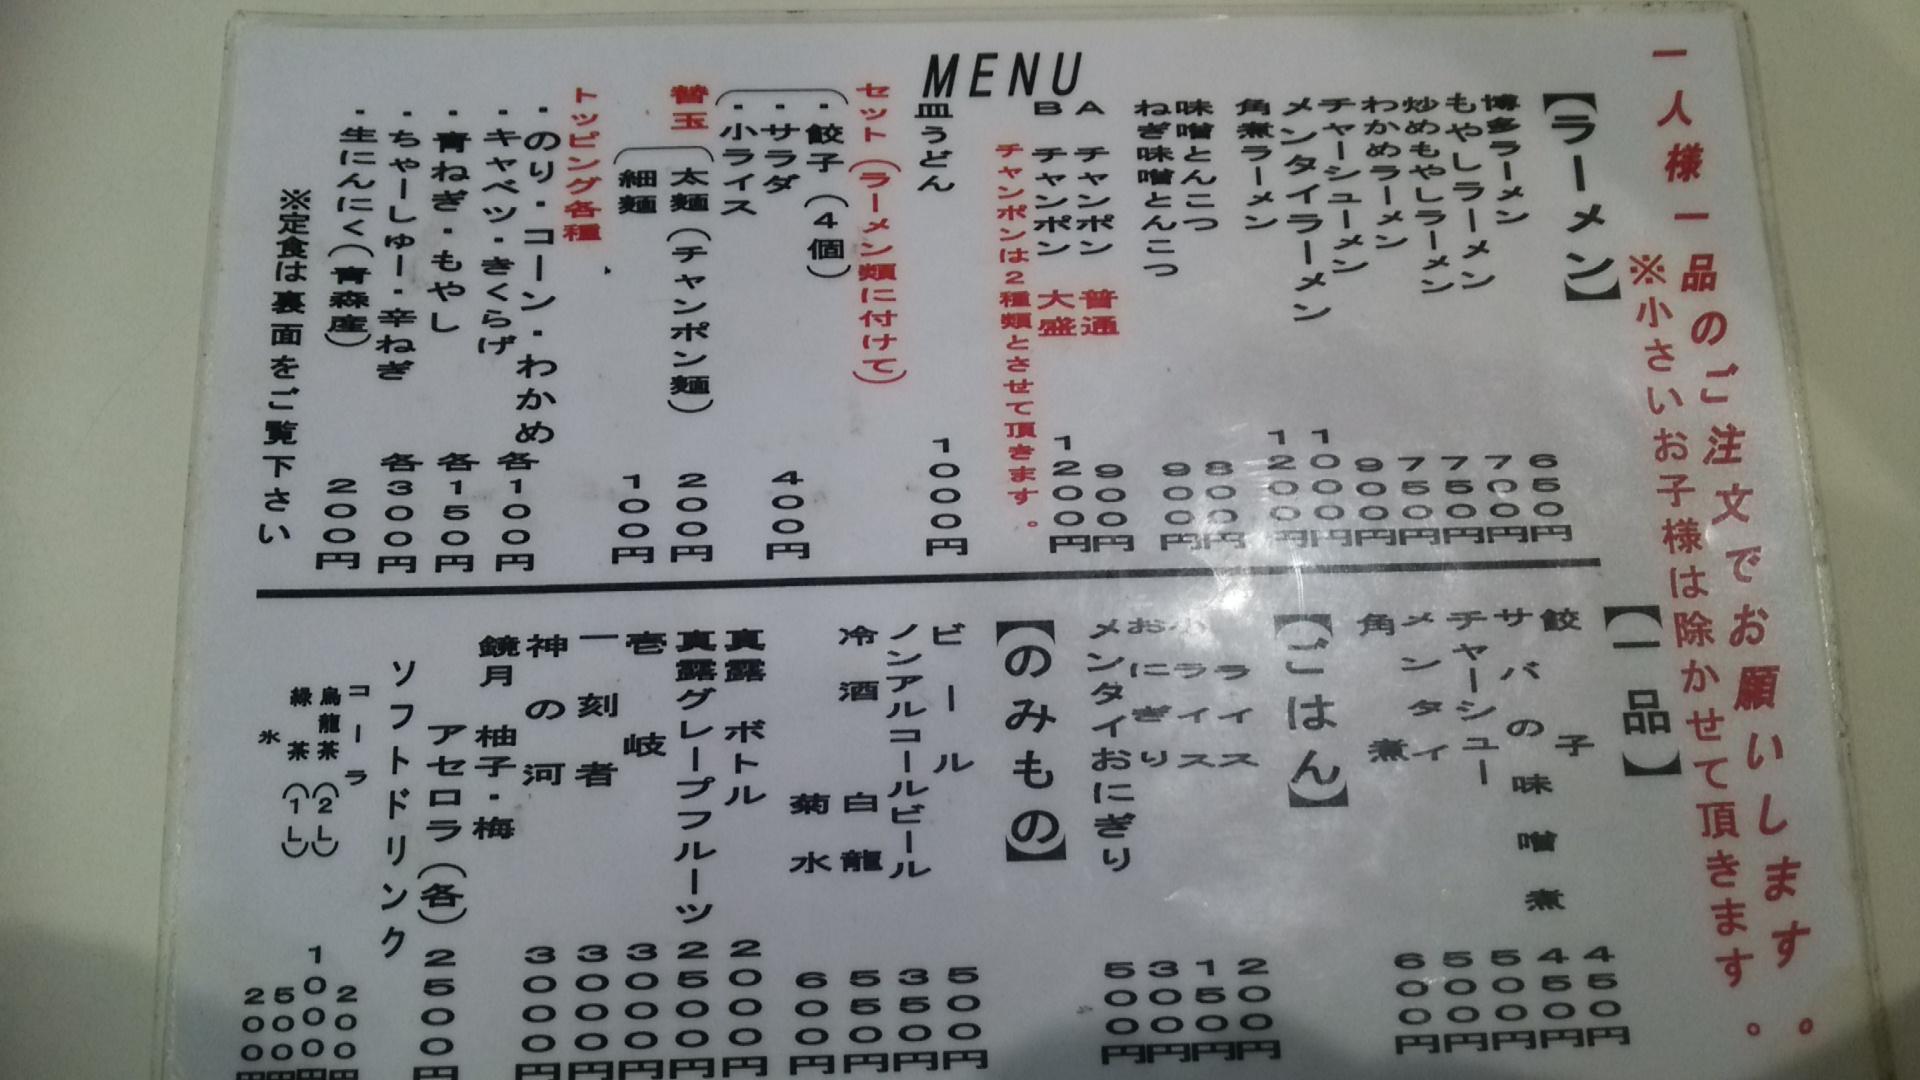 MENU
一人様一品のご注文でお願いします。
※小さいお子様は除かせて頂きます。
【ラーメン】
博多ラーメン 650円
もやしラーメン 700円
炒めもやしラーメン 750円
わかめラーメン 750円
チャーシューメン 900円
メンタイラーメン 1000円
角煮ラーメン 1200円
味噌とんこつ 800円
ねぎ味噌とんこつ 900円
A チャンポン 普通 900円
B チャンポン 大盛 1200円
チャンポンは2種類とさせて頂きます。
皿うどん 1000円
セット(ラーメン類に付けて)
・餃子(4個)
・サラダ 400円
・小ライス
替玉
太麺(チャンポン麺) 200円
細麺 100円
トッピング各種
・のり・コーン・わかめ 各100円
・キャベツ・きくらげ
・青ねぎ・もやし 各150円
・ちゃーしゅー・辛ねぎ 各300円
・生にんにく(青森産) 200円
※定食は裏面をご覧下さい
【一品】
餃子 450円
サバの味噌煮 450円
チャーシュー 500円
メンタイ 500円
角煮 600円
【ごはん】
ライス 200円
小ライス 150円
おにぎり 300円
メンタイおにぎり 500円
【のみもの】
ビール 500円
ノンアルコールビール 350円
冷酒 白龍 550円
菊水 600円
真露 ボトル 2000円
真露グレープフルーツ 2500円
壱岐 3000円
一刻者 3000円
神の河 3000円
鏡月 柚子・梅
アセロラ(各) 2500円
ソフトドリンク
コーラ 200円
烏龍茶(2L) 1000円
緑茶(1L) 500円
氷 200円